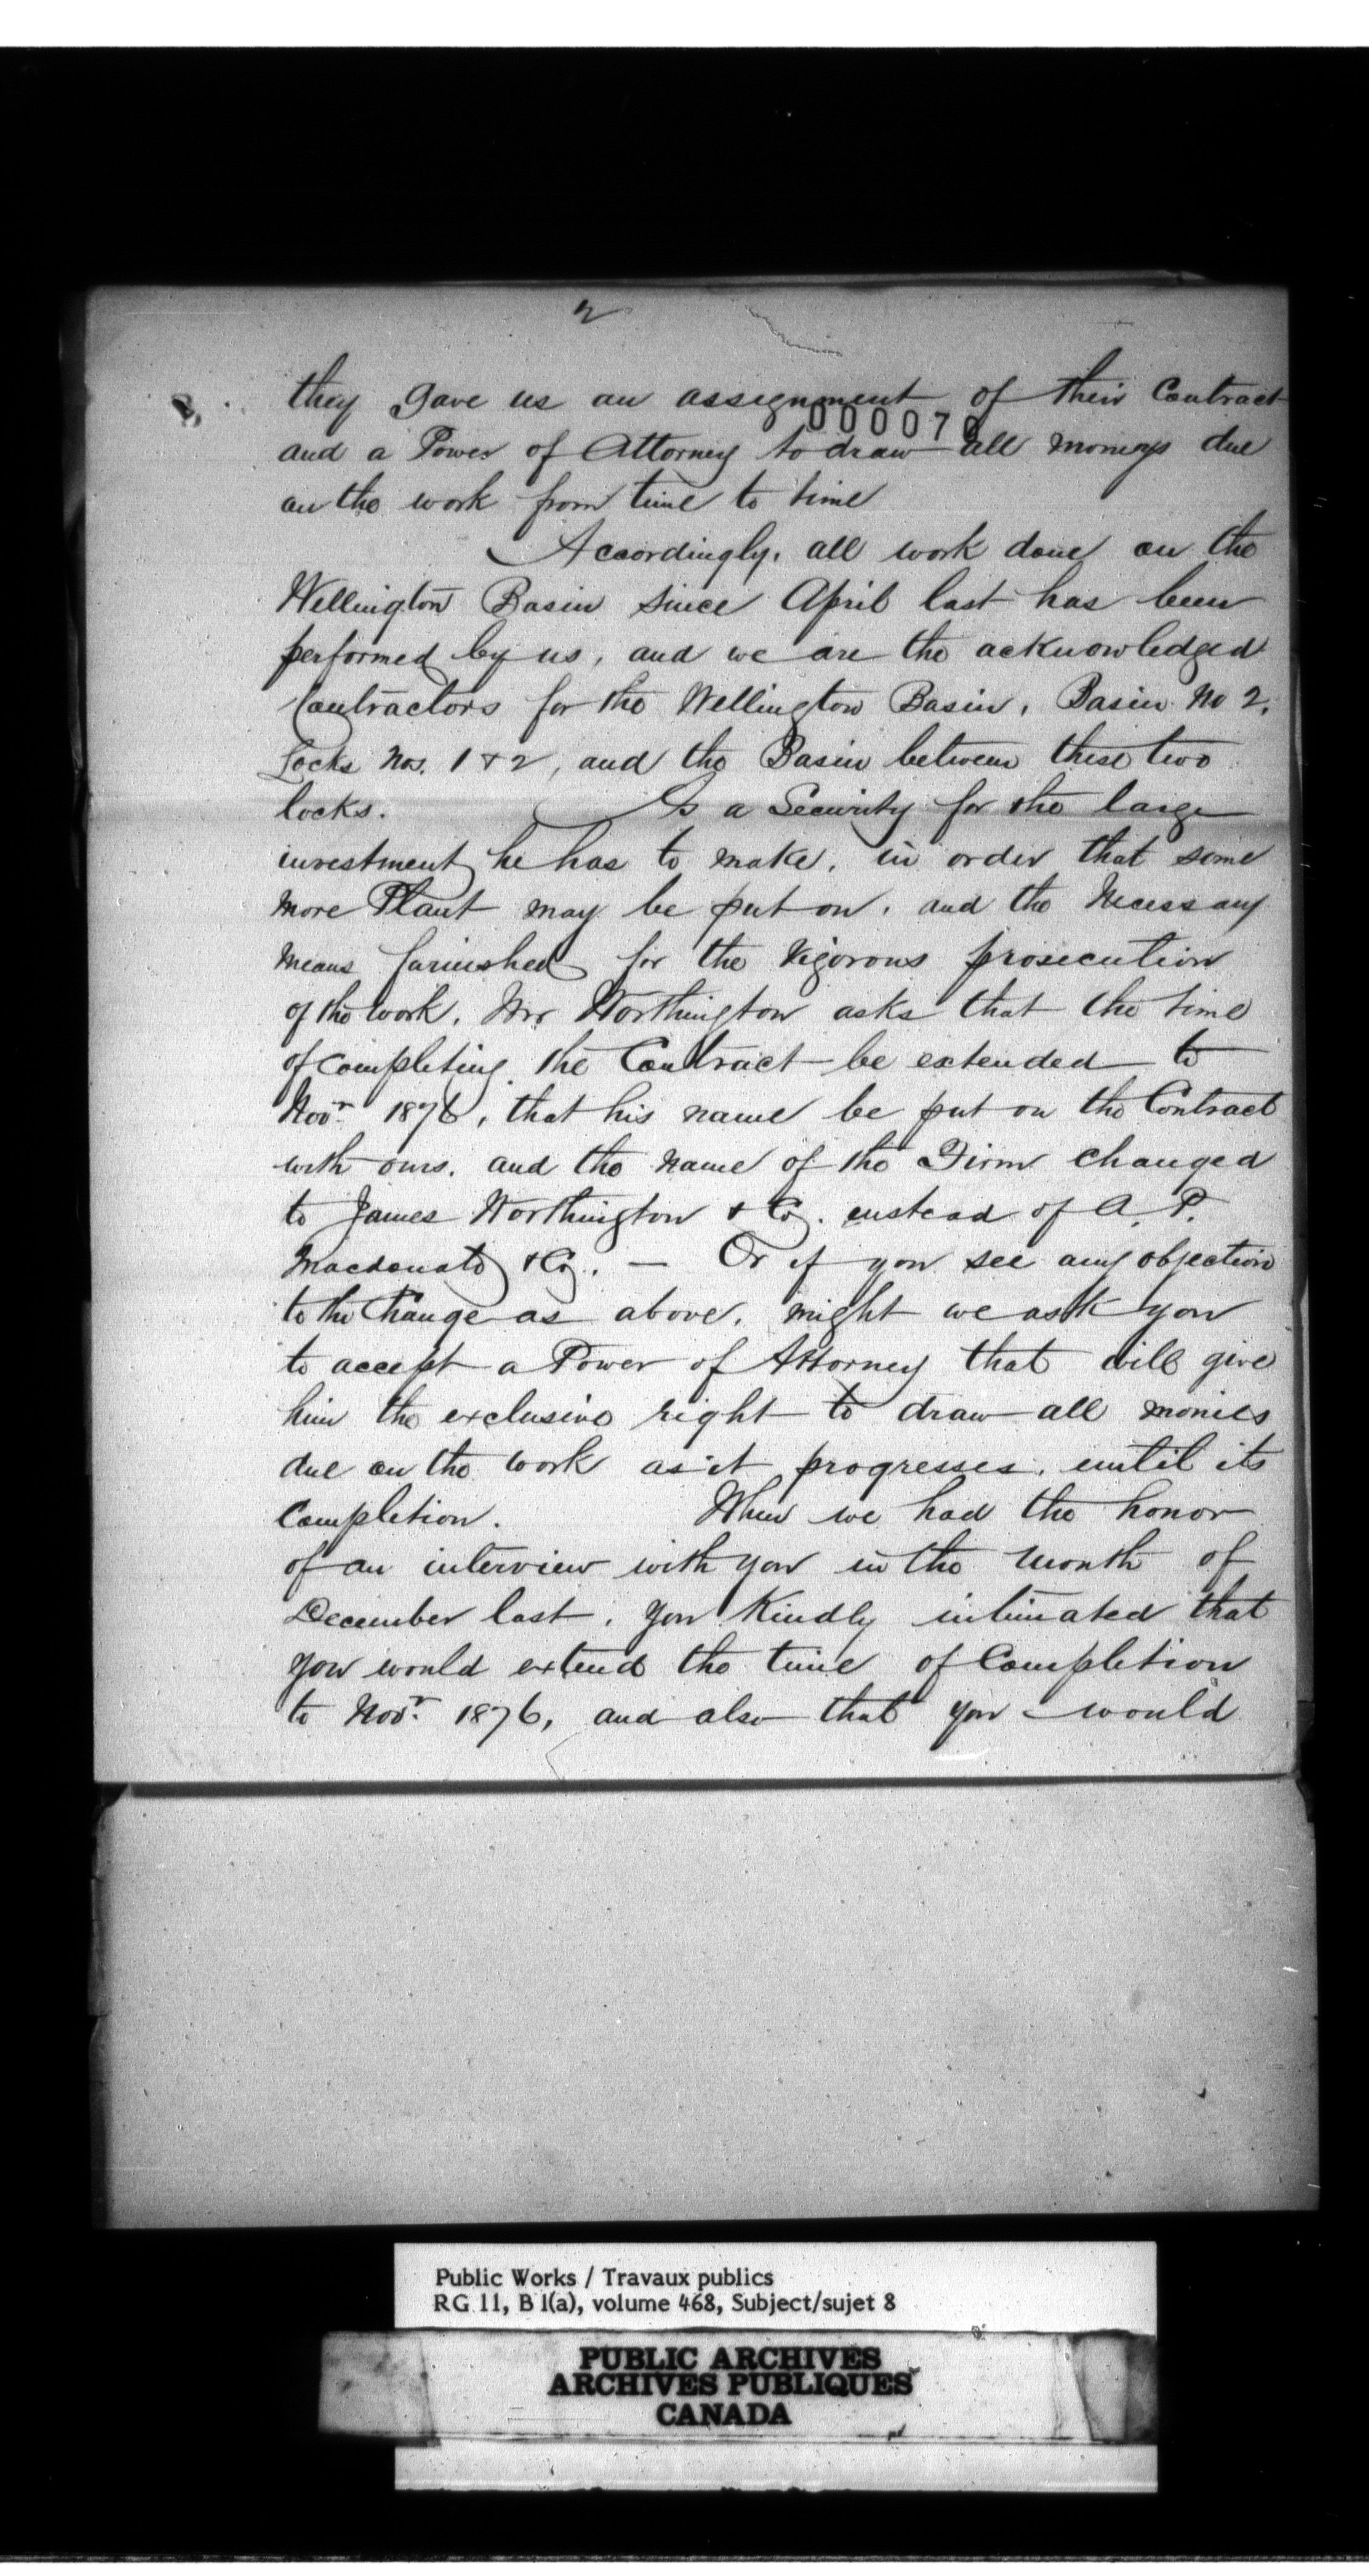 2
they gave us an assignment of their Contract
000070
and a Power of Attorney to draw all moneys due
on the work from time to time
Accordingly, all work done on the
Wellington Basin since April last has been
performed by us, and we are the acknowledged
Contractors for the Wellington Basin, Basin No 2,
Locks Nos. 1 & 2, and the Basin between these two
locks. As a Security for the large
investment he has to make, in order that some
more Plant may be put on, and the necessary
means furnished for the vigorous prosecution
of the work, Mr Worthington asks that the time
of completing the Contract be extended to
Novr 1876, that his name be put on the Contract
with ours, and the name of the Firm changed
to James Worthington & Co. instead of A. P.
Macdonald & Co. — Or if you see any objection
to the Change as above, might we ask you
to accept a Power of Attorney that will give
him the exclusive right to draw all monies
due on the work as it progresses, until its
Completion. When we had the honor
of an interview with you in the month of
December last, you Kindly intimated that
you would extend the time of Completion
to Novr 1876, and also that you would
Public Works / Travaux publics
RG 11, B 1(a), volume 468, Subject/sujet 8
PUBLIC ARCHIVES
ARCHIVES PUBLIQUES
CANADA